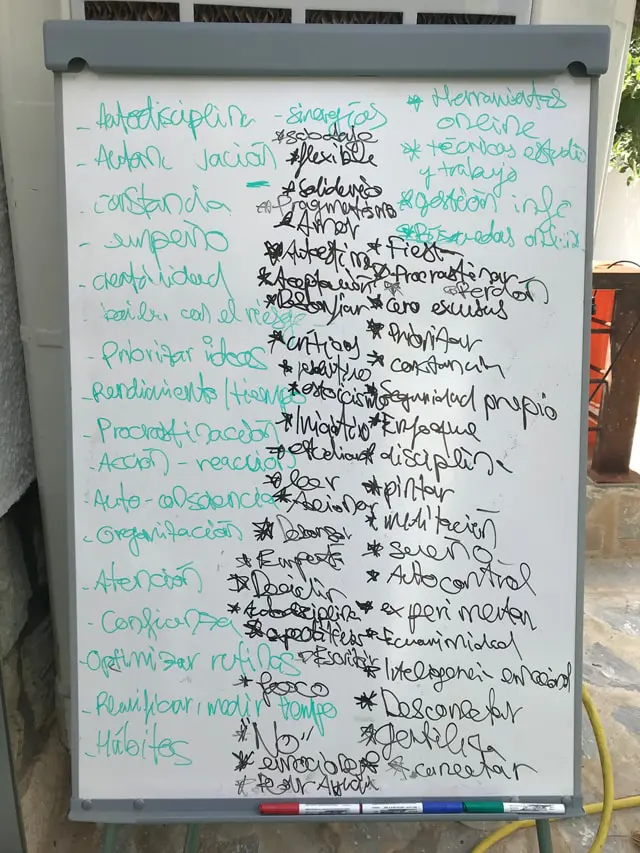 - Autodisciplin
- Autom jación
- constancia
- empeño
- creatividad
bailar con el riesgo
- Priorizar ideas
- Rendimiento / tiempo
- Procrastinación
- Acción - reacción
- Auto-consciencia
- Organización
- Atención
- Confianza
- Optimizar rutinas
- Planificar, medir tiempo
- Hábitos
- sinergias
* flexible
* Solidario
* Pragmatismo
* Amor
* Autoestima
* Aceptación
* críticos
* estoicismo
* leer
* Accionar
* Descansar
* Empatía
* Decidir
* Autodisciplina
* Escribir
* foco
* "No"
* emociones
* Pedir Ayuda
* Herramientas
online
* técnicas estudio
y trabajo
* gestión info
* Búsquedas online
* Procrastinar
* Perdón
* Cero excusas
* Priorizar
* constancia
* Seguridad propio
* Enfoque
* disciplina
* pintar
* meditación
* sueño
* Autocontrol
* experimentar
* Ecuanimidad
* Inteligencia emocional
* Desconectar
* conectar